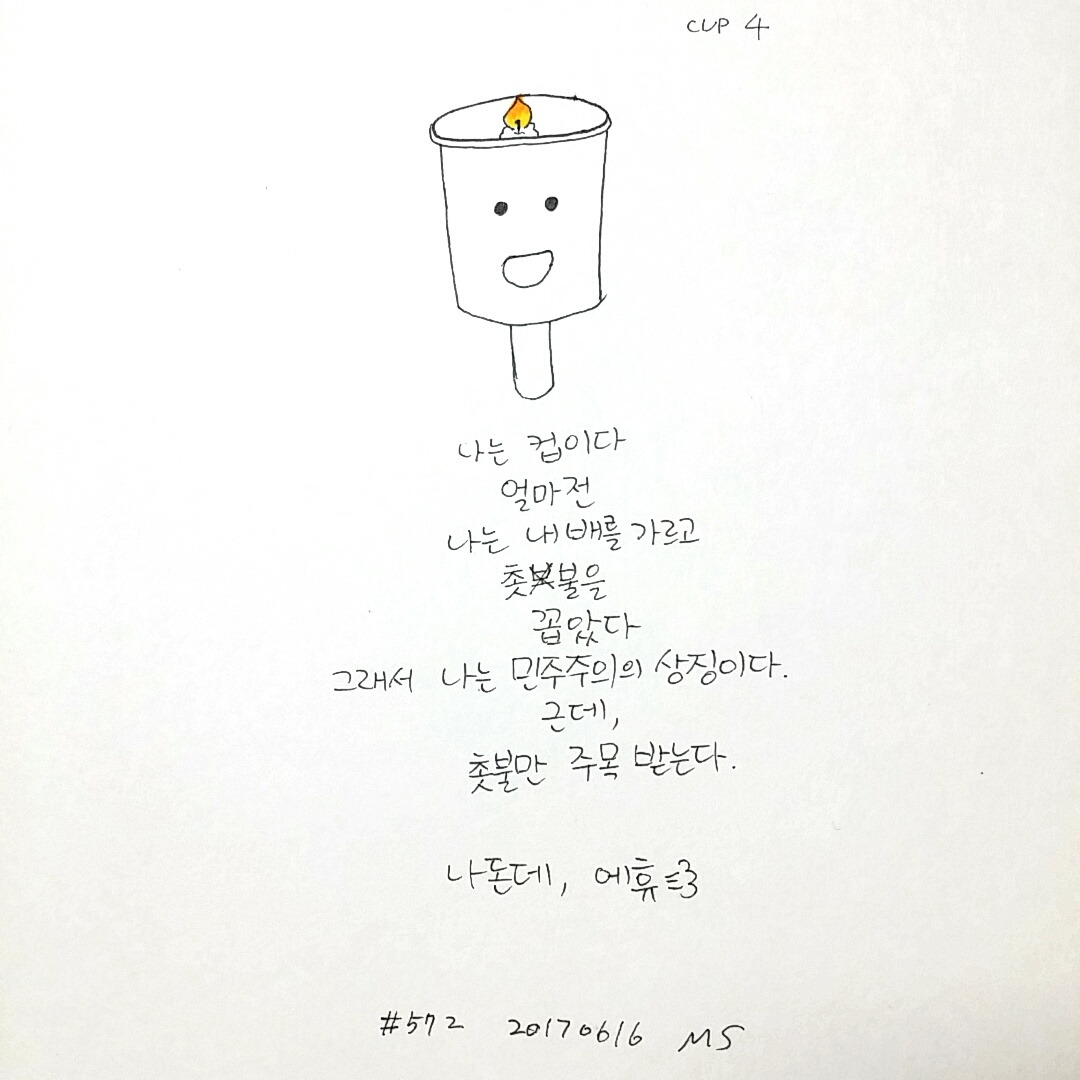 CUP 4
나는 컵이다
얼마전
나는 내 배를 가르고
촛불을
꼽았다
그래서 나는 민주주의의 상징이다.
근데,
촛불만 주목 받는다.
나돈데, 에휴
#572 20170616 MS